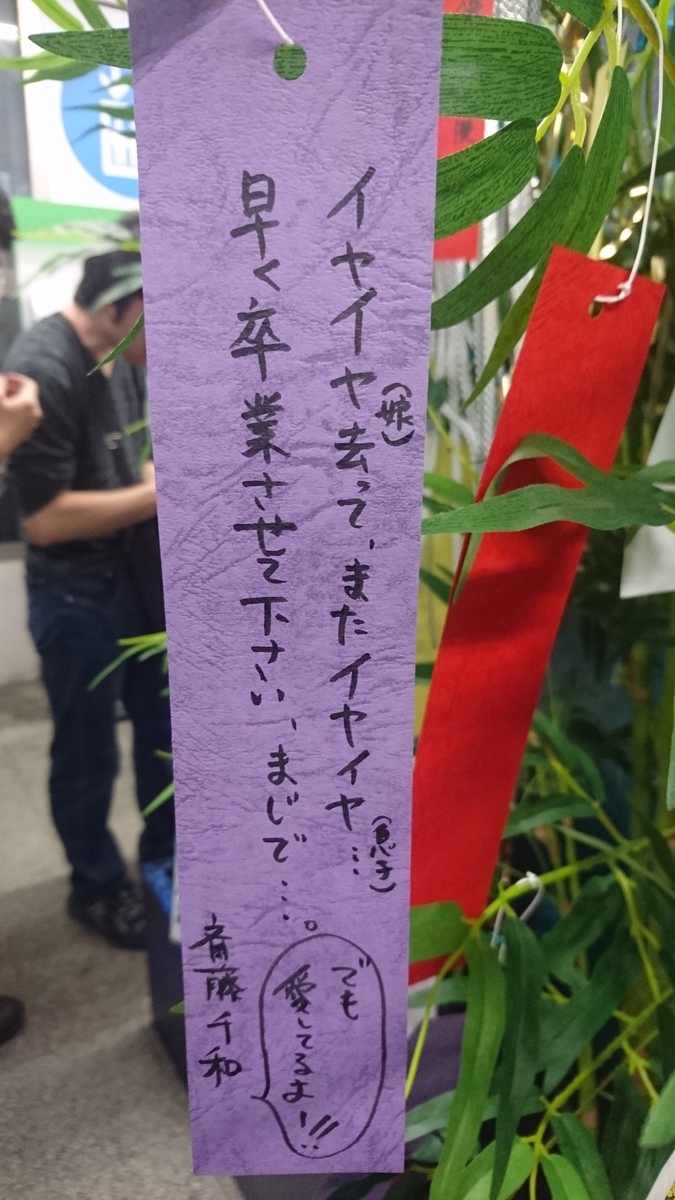 イヤイヤ(娘)去って、またイヤイヤ…(息子)
早く卒業させて下さい、まじで…。
でも
愛してるよー!!
斉藤千和